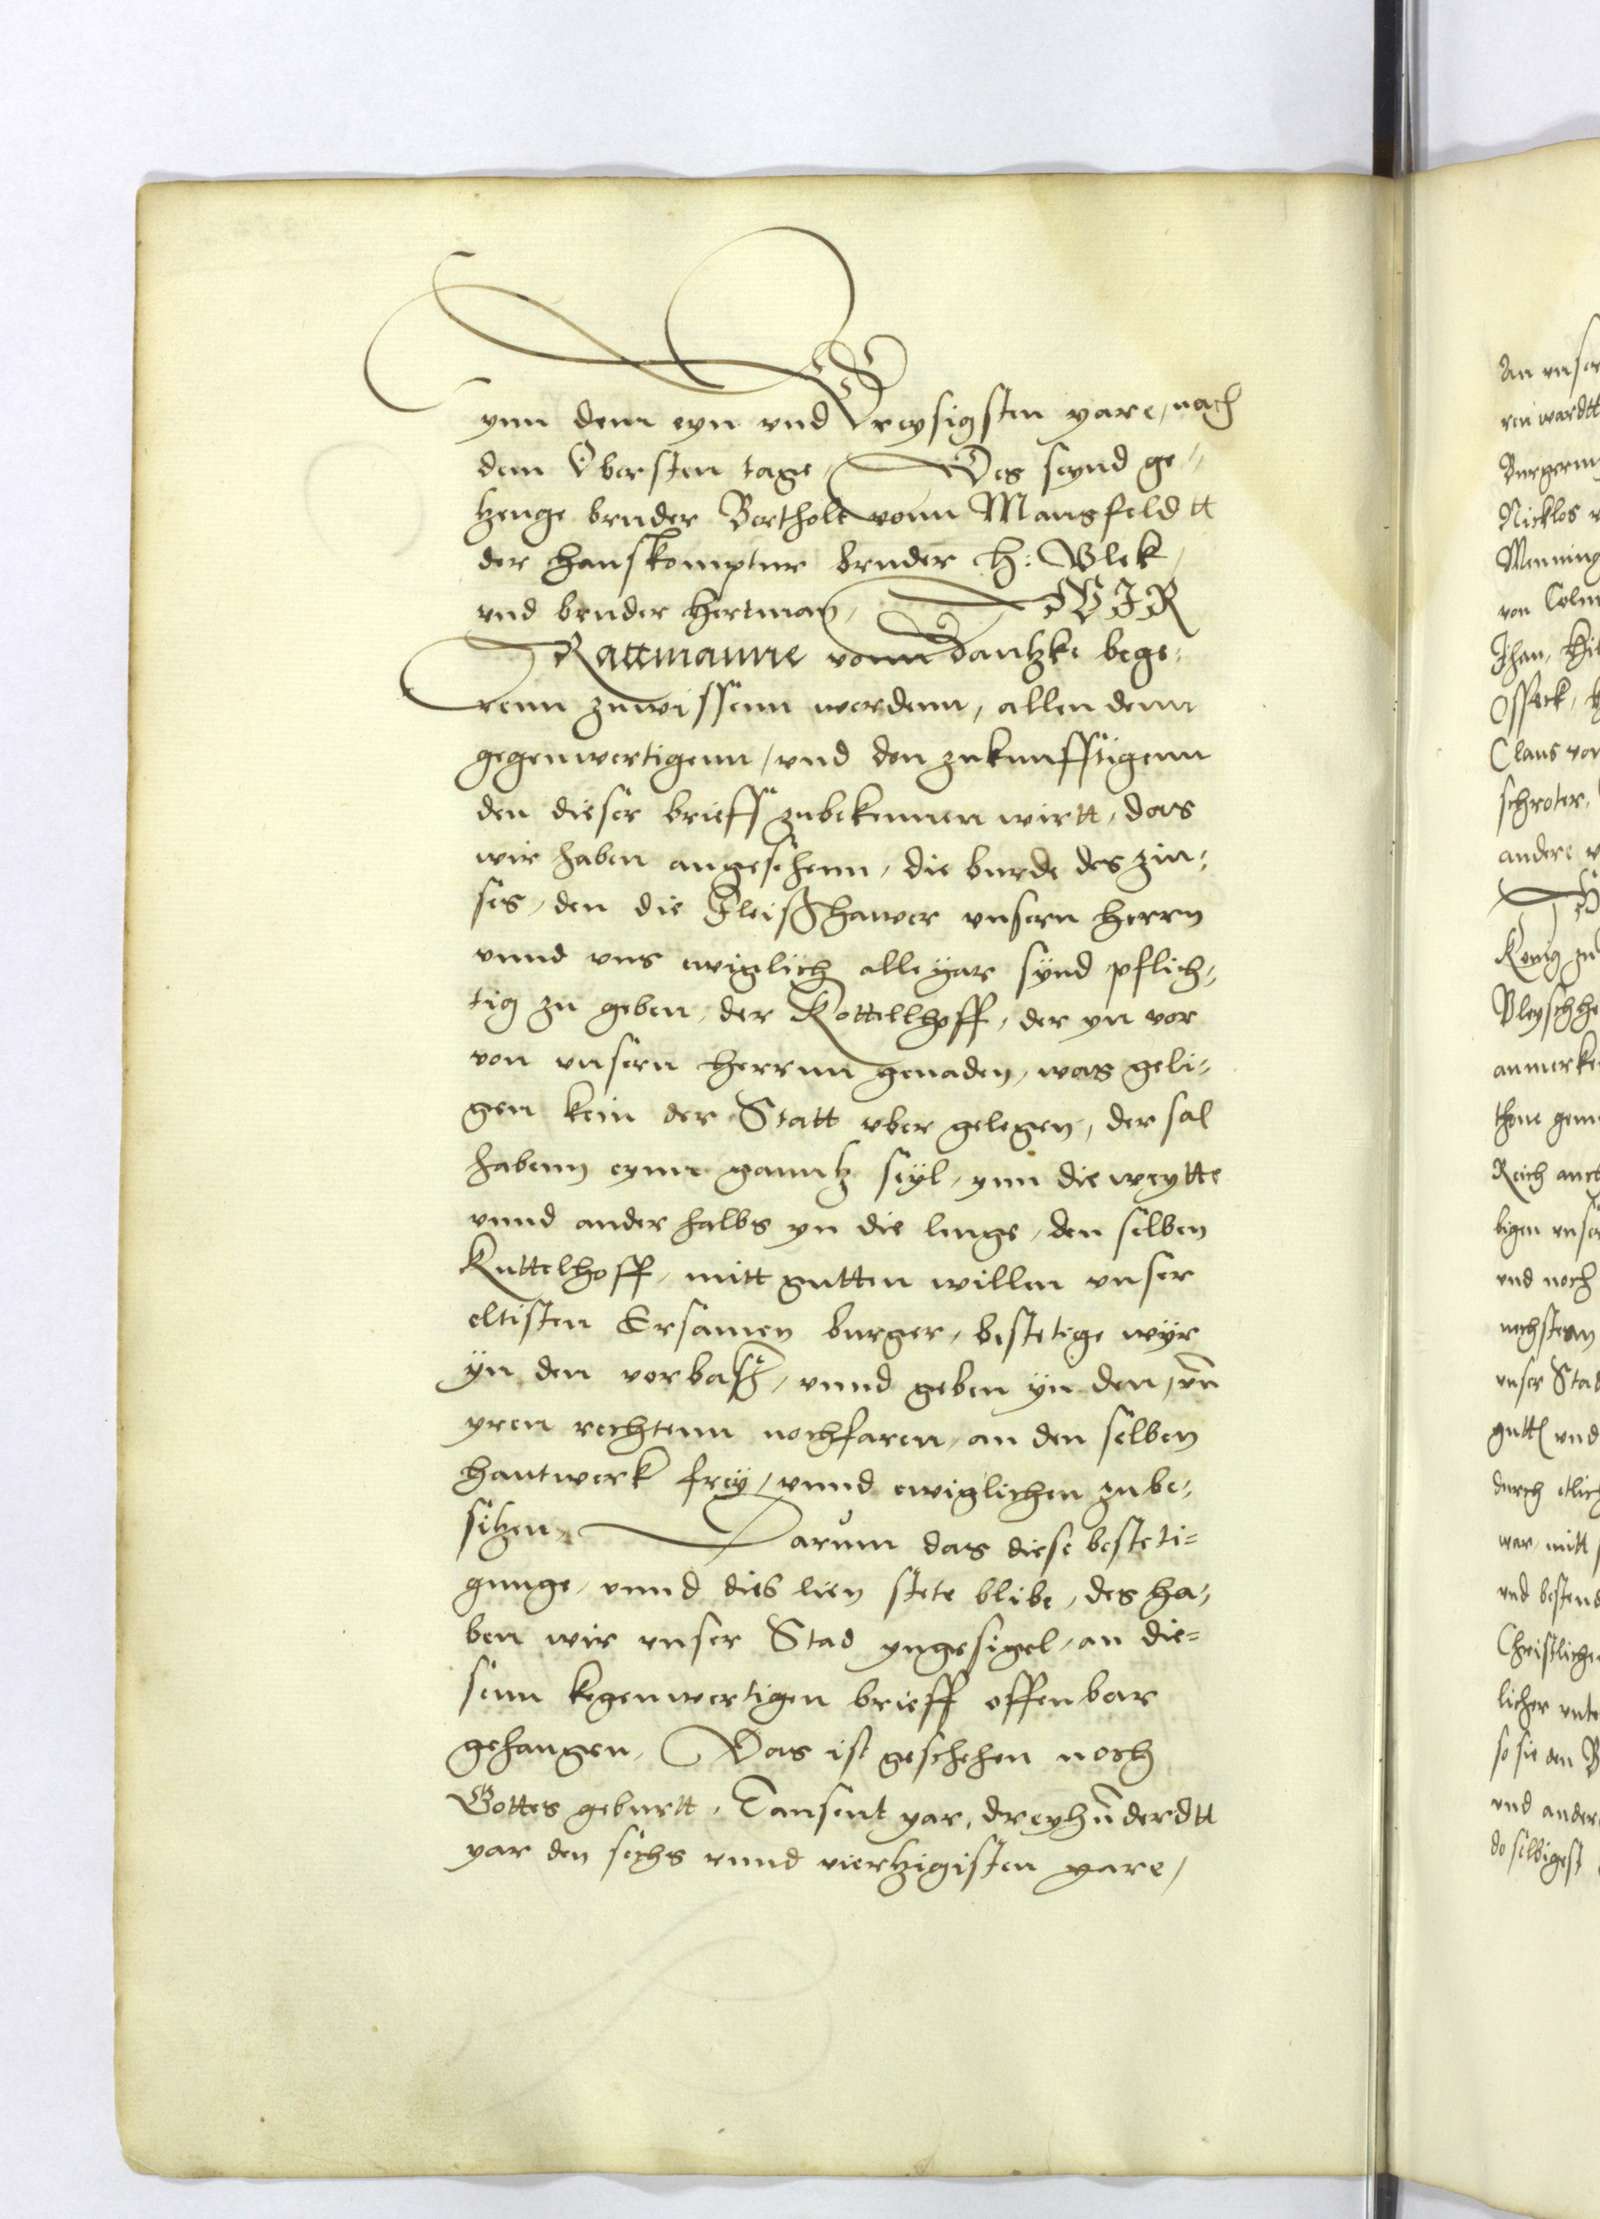 ynn dem eyn vnd Dreysigsten yare, nach
dem Obersten tage, Des seynd ge=
tzeuge bruder Bertholt vonn Mansfeldtt
der hauskomptur bruder H: Vlek,
vnd bruder Hertman, WIR
Rattmanne vonn Dantzke bege=
renn zuwissenn werdenn, allen denn
gegenwertigenn, vnd den zukunfftigenn
den dieser brieff zubekennen wirtt, das
wir haben angesehenn, die burde des zin=
ses, den die Fleischhawer vnsern herrn
vnnd vns ewiglich alle yar synd pflich=
tig zu geben, der Kottellhoff, der yn vor
von vnsern herrnn genaden, was geli=
gen kein der Statt vber gelegen, der sal
habenn eynn ganntz seyl, ynn die weytte
vnnd ander halbs yn die lenge, den selben
Kuttelhoff, mitt gutten willen vnser
eltisten Ersamen burger, bestetige wyr
yn den vorbas, vnnd geben yn den, vn̄
yren rechtenn nochfaren, an den selben
hantwerk frey, vnnd ewiglichen zube=
sitzen, Darum das diese besteti=
gunge, vnnd dies lien stete blibe, des ha=
ben wir vnser Stad yngesigel, an die=
senn kegenwertigen brieff offenbar
gehangen, Das ist geschehen noch
Gottes geburtt, Tausent yar, dreyhūderdtt
yar den sechs vnnd viertzigisten yare,
An vnser
Burgerm
Nicklos v
Menning
von Coln
Jhan, Hil
Osseck, H
Claus von
schroter,
andere v
Konig zu
Bleyschhe
anmerke
thone gem
Reich auct
ligen vnser
vnd noch
nechstenn
vnser Stad
vnd
durch etlich
war mitt
vnd bestend
Christliche
licher vnte
so sie den B
vnd ander
do selbigest